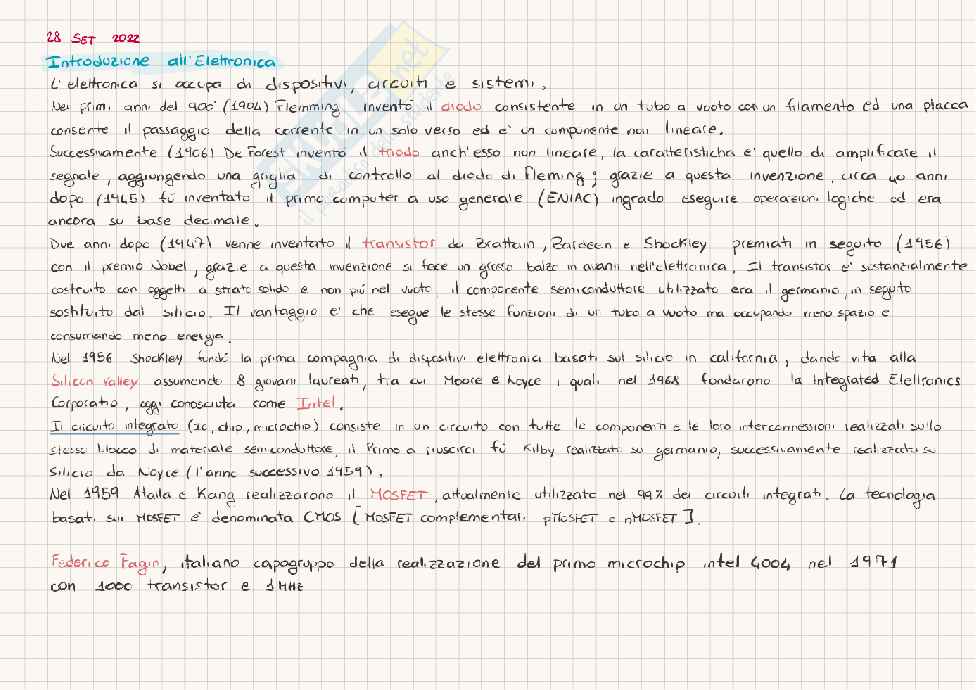 28 SET 2022
Introduzione all'Elettronica
L'elettronica si occupa di dispositivi, circuiti e sistemi.
Nei primi anni del 900' (1904) Fleimming inventò il diodo consistente in un tubo a vuoto con un filamento ed una placca
consente il passaggio della corrente in un solo verso ed e' un componente non lineare.
Successivamente (1906) De Forest inventò il triodo anch'esso non lineare, la caratteristicha e' quello di amplificare il
segnale, aggiungendo una griglia di controllo al diodo di Fleming; grazie a questa invenzione, circa 40 anni
dopo (1945) fù inventato il primo computer a uso generale (ENIAC) ingrado eseguire operazioni logiche ed era
ancora su base decimale.
Due anni dopo (1947) venne inventato il transistor da Brattain, Bardeen e Shockley premiati in seguito (1956)
con il premio Nobel, grazie a questa invenzione si fece un grosso balzo in avanti nell'elettronica. Il transistor e' sostanzialmente
costruito con oggetti a strato solido e non più nel vuoto, il componente semiconduttore utilizzato era il germanio, in seguito
sostituito dal silicio. Il vantaggio e' che esegue le stesse funzioni di un tubo a vuoto ma occupando meno spazio e
consumando meno energia.
Nel 1956 Shockley fondò la prima compagnia di dispositivi elettronici basati sul silicio in california, dando vita alla
Silicon valley assumendo 8 giovani laureati, tra cui Moore e Noyce i quali nel 1968 fondarono la Integrated Elettronics
Corporatio, oggi conosciuta come Intel.
Il circuito integrato (IC, chip, microchip) consiste in un circuito con tutte le componenti e le loro interconnessioni realizzati sullo
stesso blocco di materiale semiconduttore, il Primo a riuscirci fù Kilby realizzato su germanio, successivamente realizzato su
Silicio da Noyce (l'anno successivo 1959).
Nel 1959 Atalla e Kang realizzarono il MOSFET, attualmente utilizzato nel 99% dei circuiti integrati. La tecnologia
basati sui MOSFET e' denominata CMOS [MOSFET complementari pMOSFET e nMOSFET].
Federico Fagin, italiano capogruppo della realizzazione del primo microchip intel 4004 nel 1971
con 1000 transistor e 1MHz